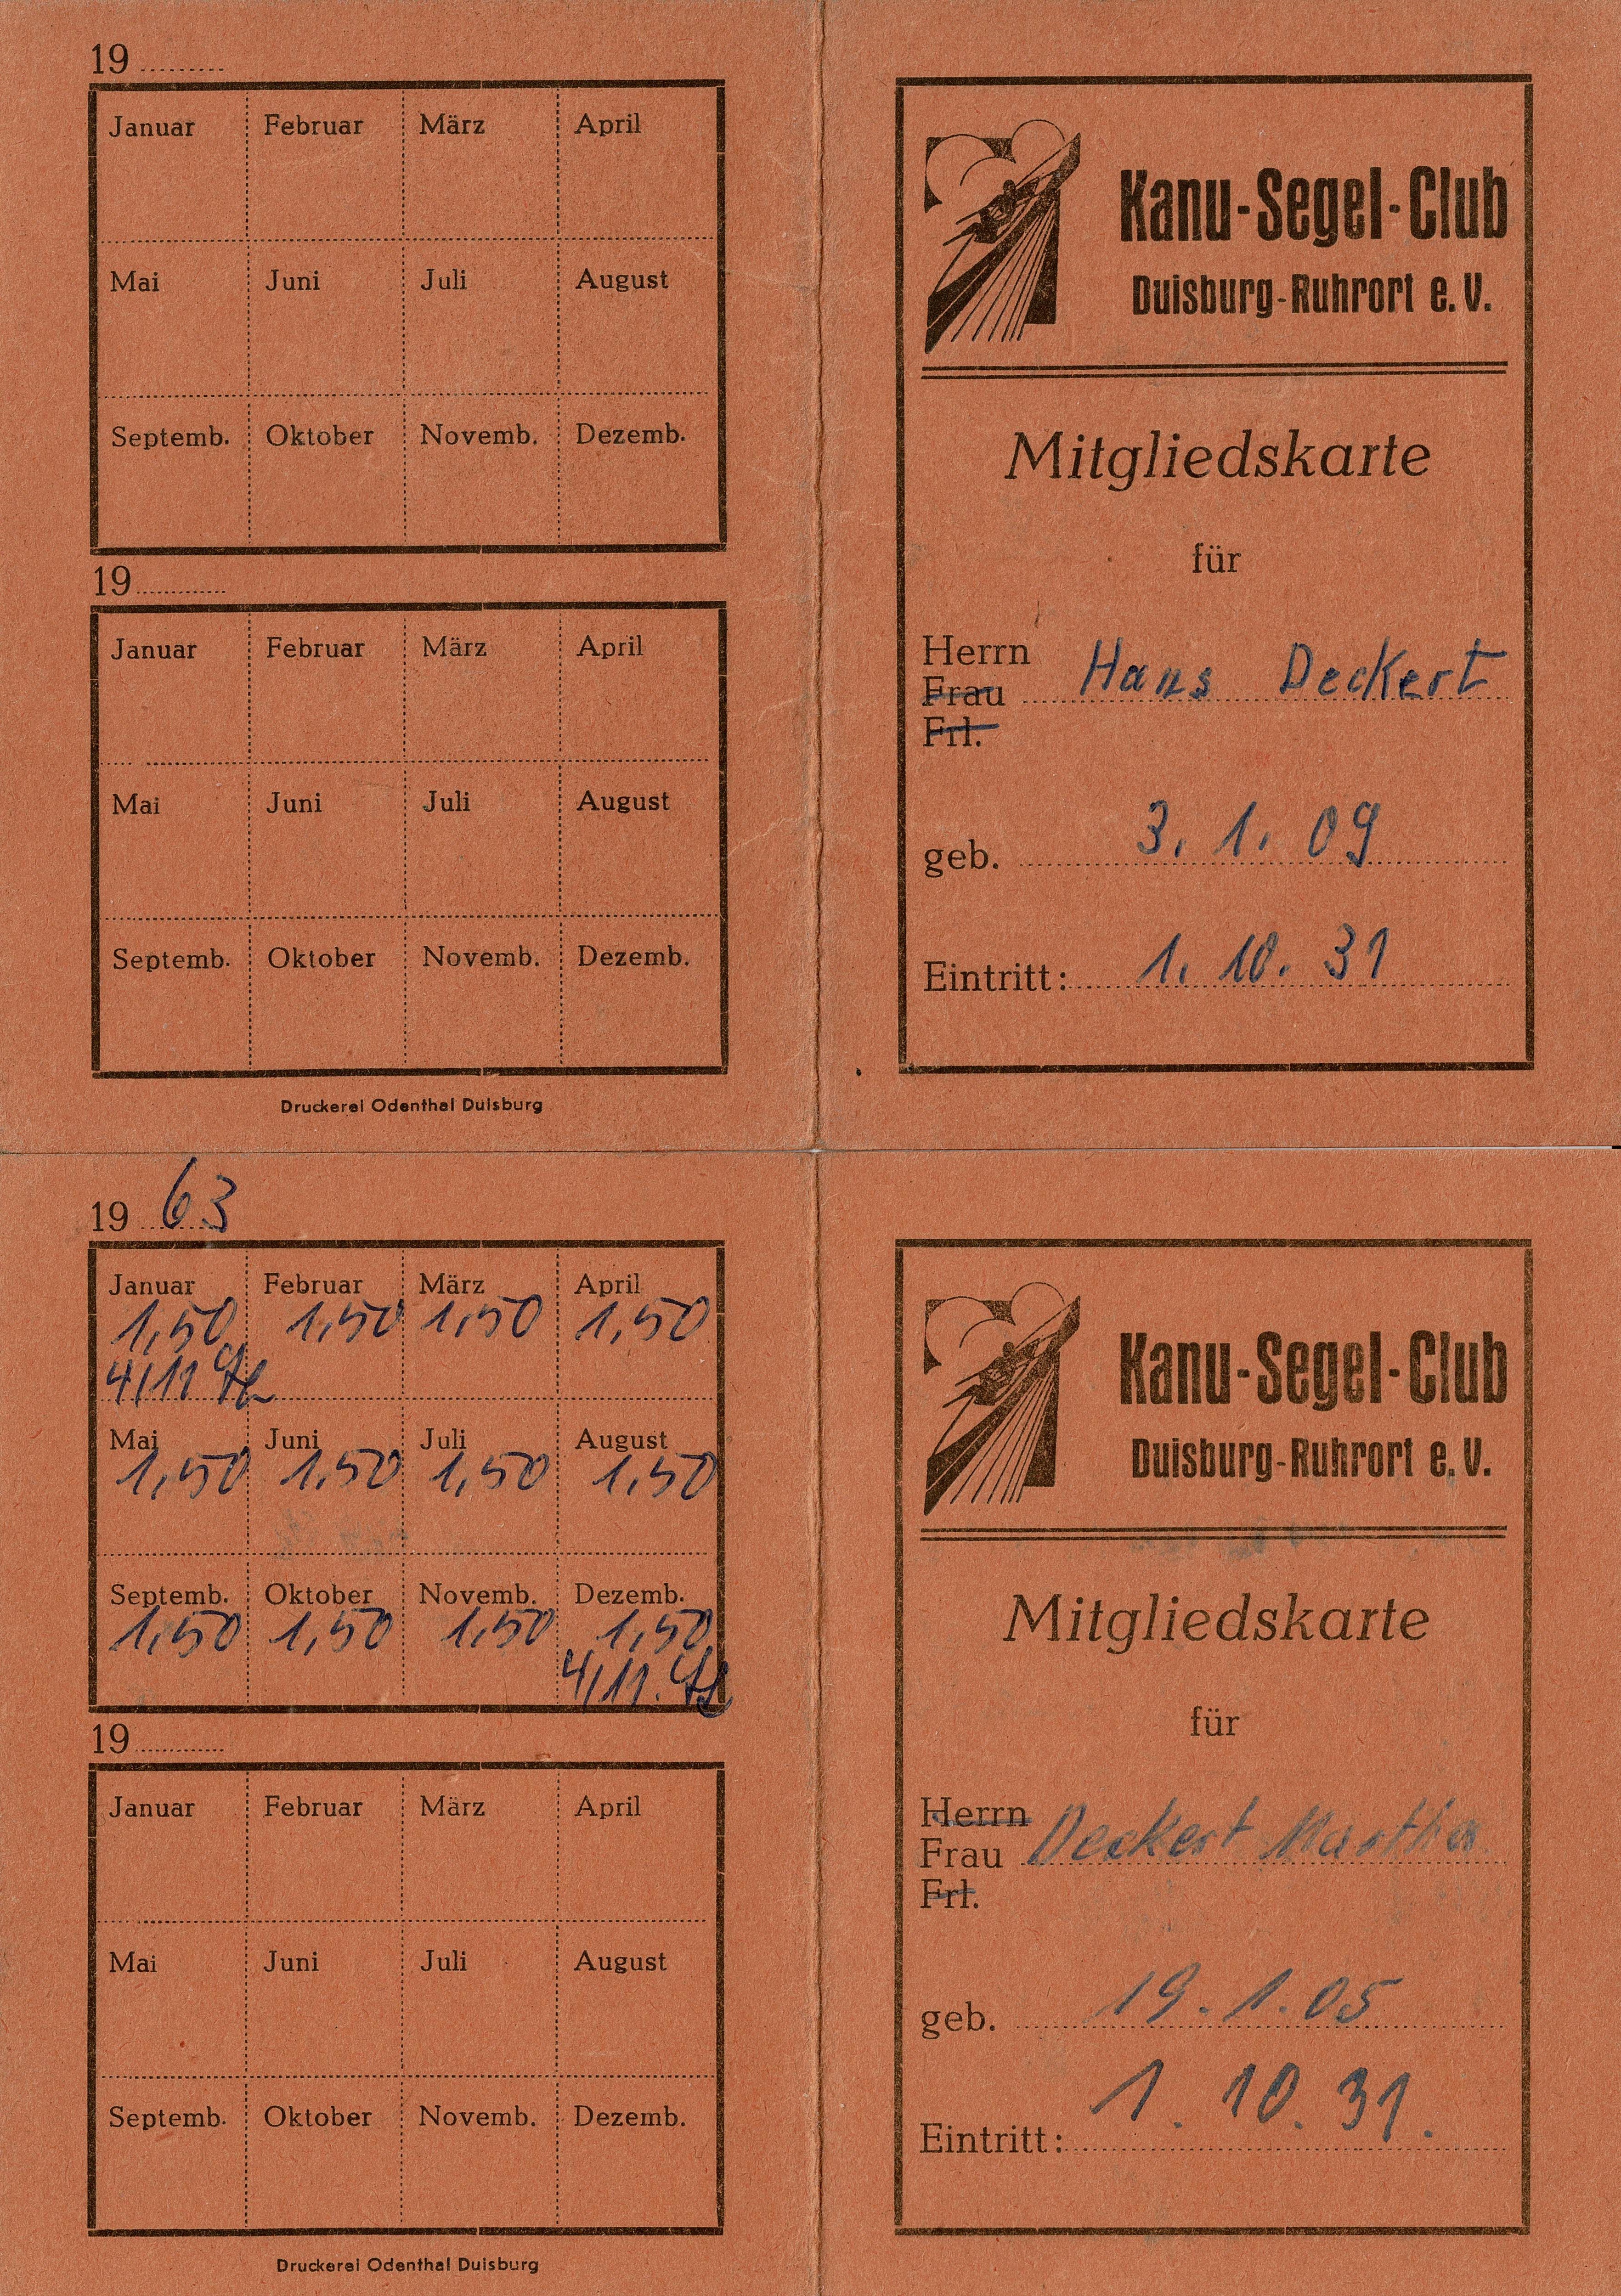 19
Januar Februar März April
Mai Juni Juli August
Septemb. Oktober Novemb. Dezemb.
19
Januar Februar März April
Mai Juni Juli August
Septemb. Oktober Novemb. Dezemb.
Druckerei Odenthal Duisburg
Kanu-Segel-Club
Duisburg-Ruhrort e.V.
Mitgliedskarte
für
Herrn
Frau Hans Deckert
Frl.
geb. 3. 1. 09
Eintritt: 1. 10. 31
19 63
Januar Februar März April
1,50 1,50 1,50 1,50
4/11
Mai Juni Juli August
1,50 1,50 1,50 1,50
Septemb. Oktober Novemb. Dezemb.
1,50 1,50 1,50 1,50
4/11.
19
Januar Februar März April
Mai Juni Juli August
Septemb. Oktober Novemb. Dezemb.
Druckerei Odenthal Duisburg
Kanu-Segel-Club
Duisburg-Ruhrort e.V.
Mitgliedskarte
für
Herrn
Frau Deckert Martha
Frl.
geb. 19. 1. 05
Eintritt: 1. 10. 31.